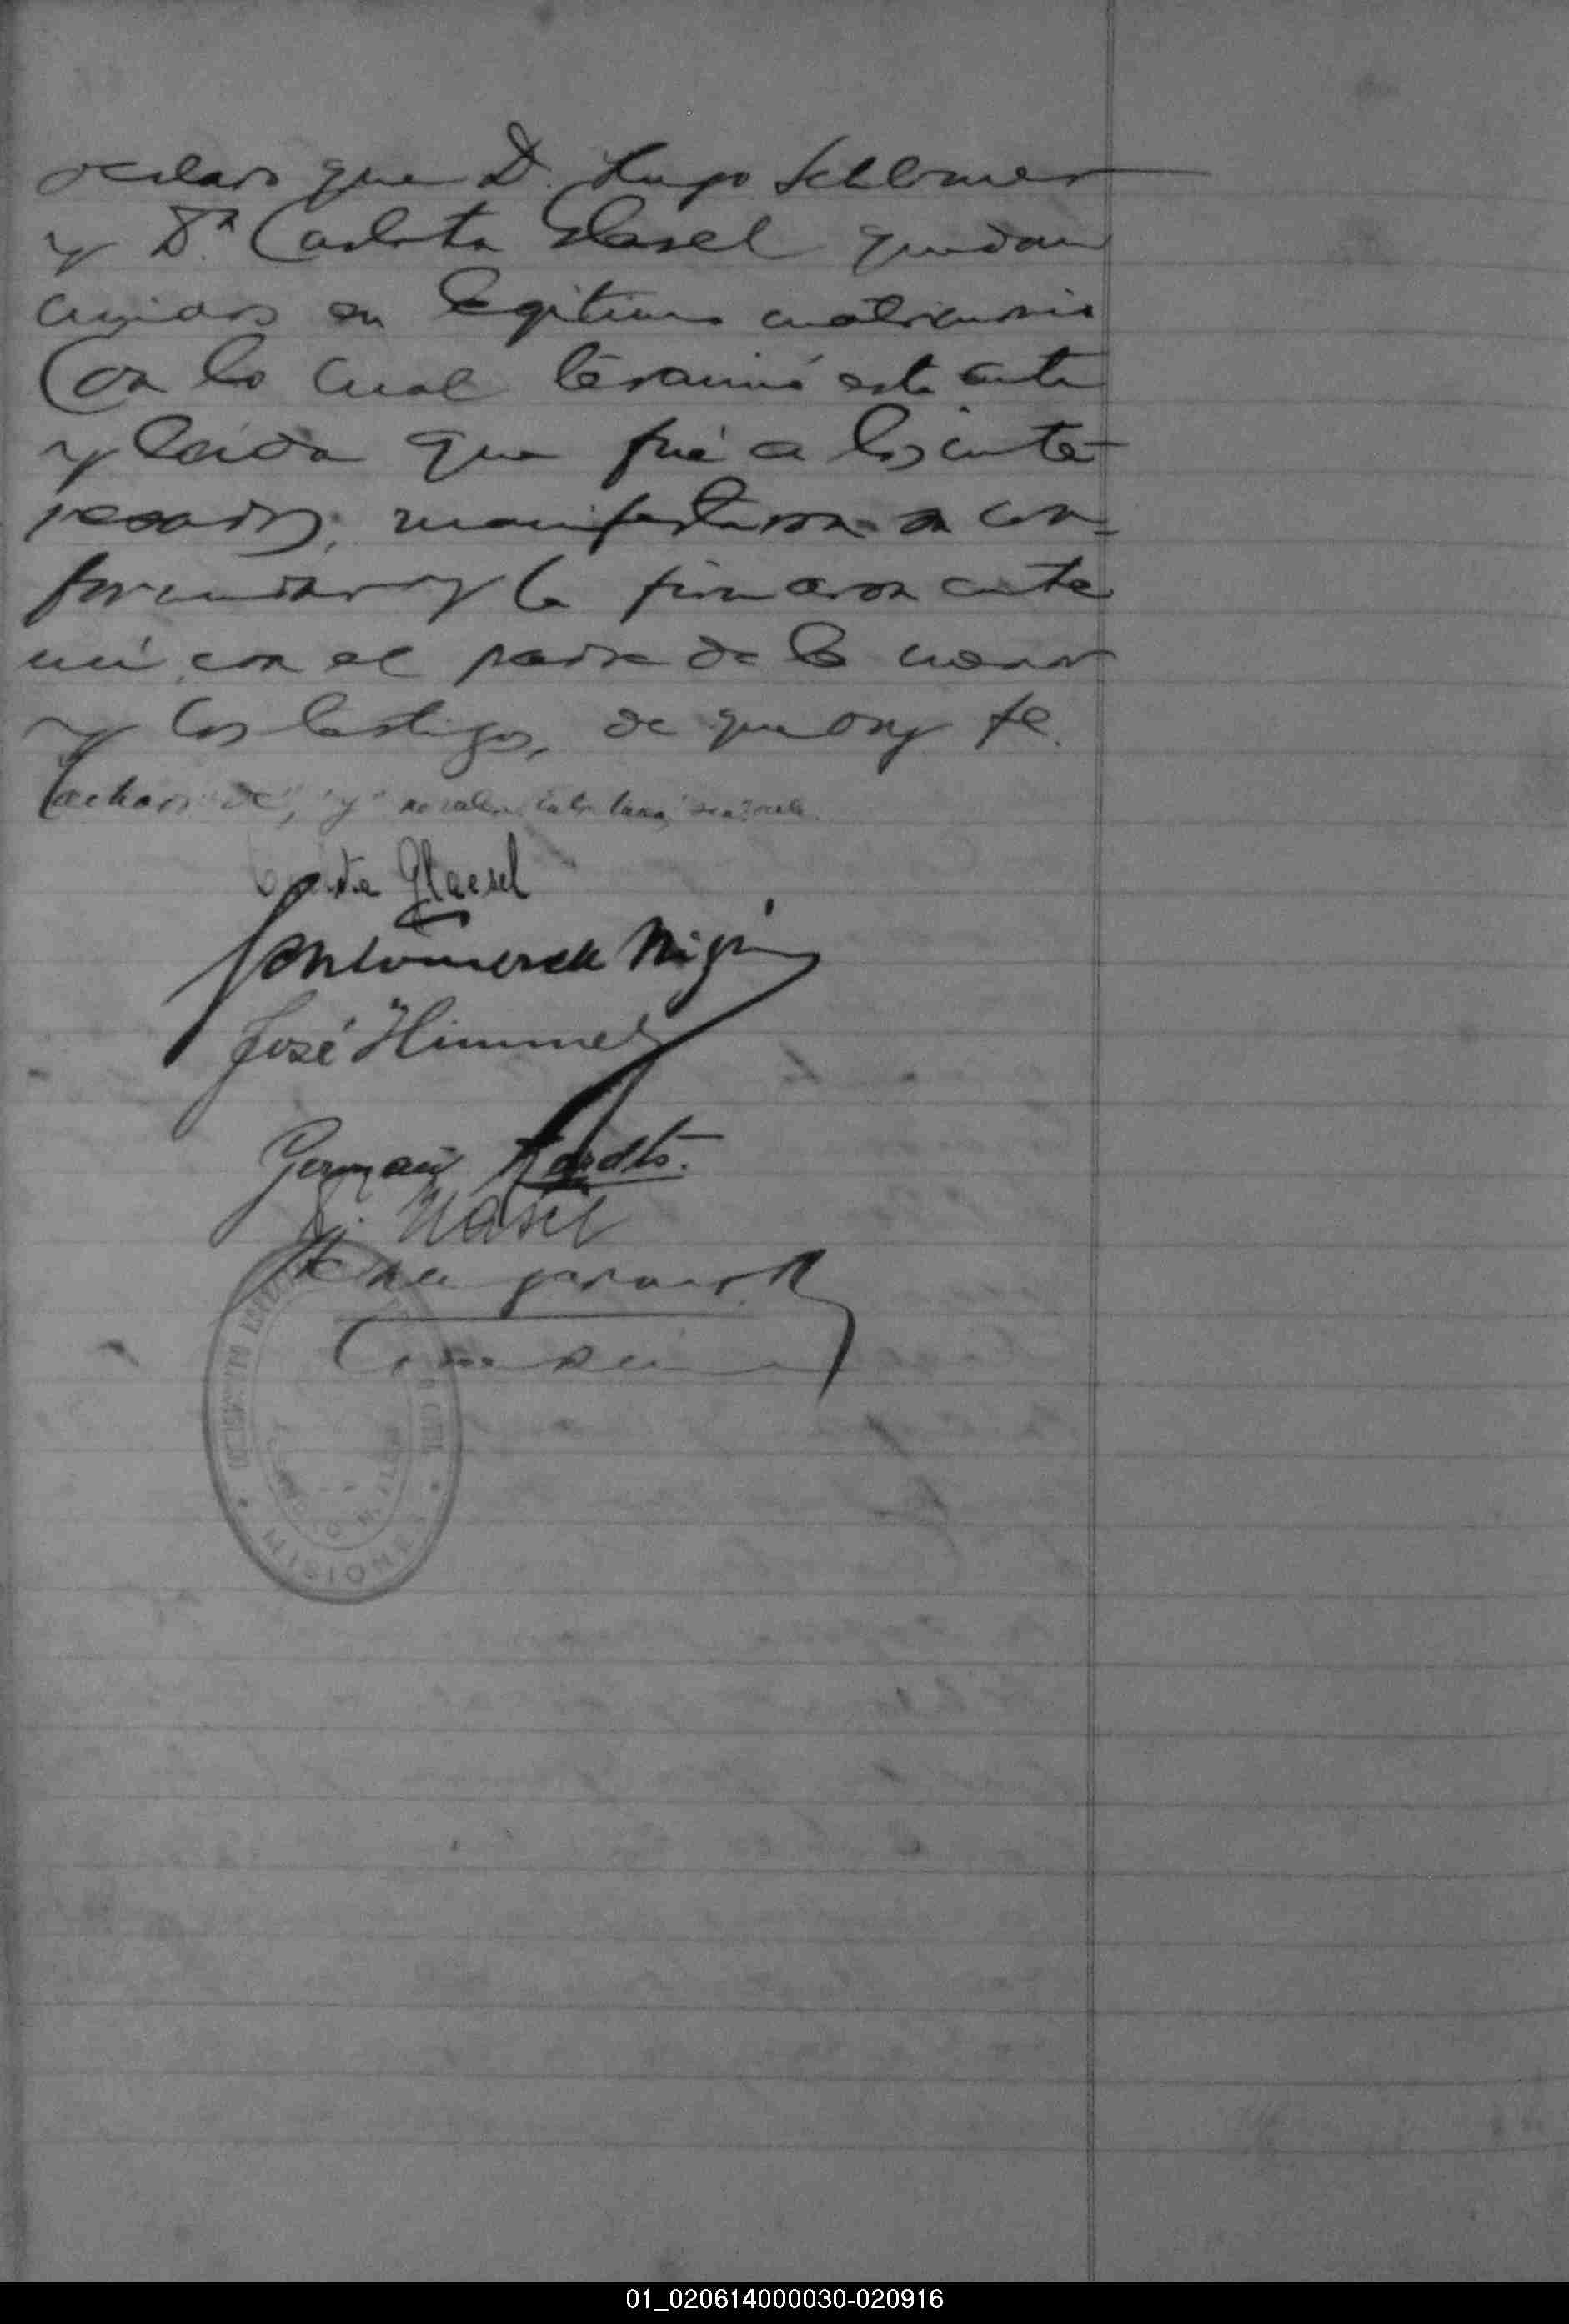 declaro que D. Hugo Schlomer
y Dª Carlota Glasel quedan
unidos en legitimo matrimonio
Con lo cual terminó esta acta
y leida que fué a los inte-
resados, manifestaron su con-
formidad y la firmaron ante
mi con el padre de la menor
y los testigos, de que doy fe.
Tachado "de", "y" no valen
Glaesel
José Himmel
German
MISIONES
01_020614000030-020916